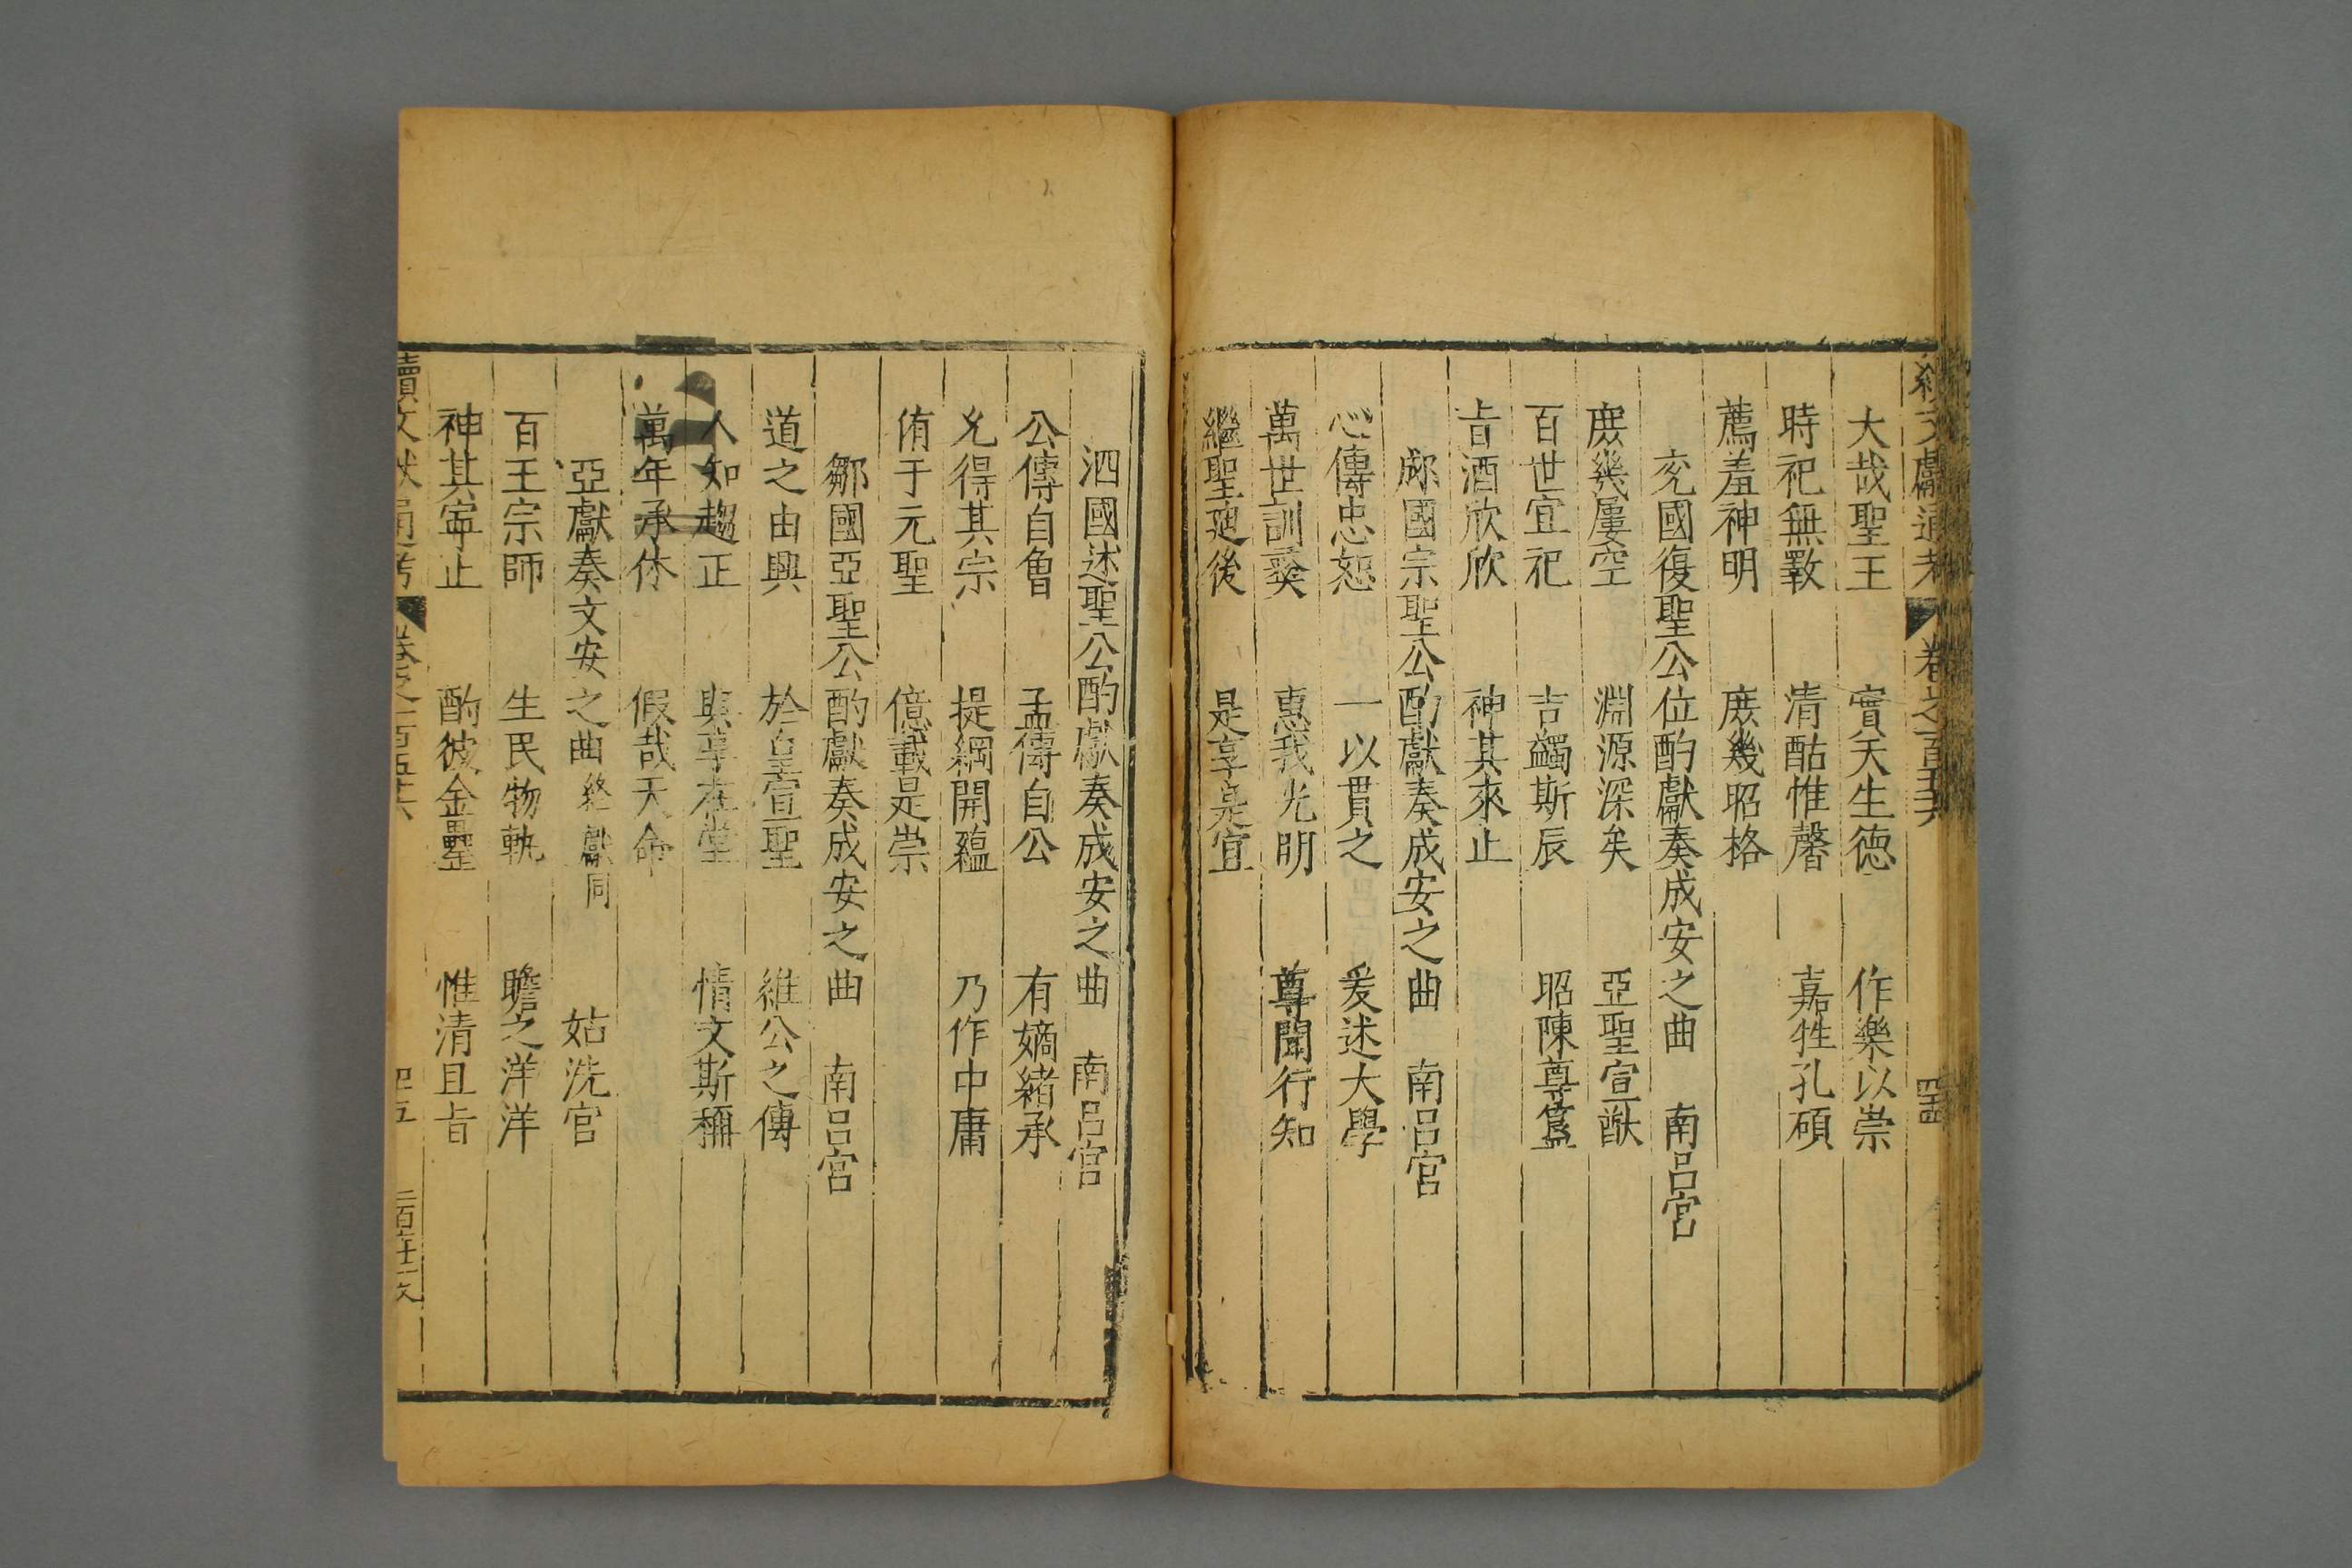 續文獻通考 卷之一百五十六 四十四
大哉聖王 實天生德 作樂以崇
時祀無斁 清酤惟馨 嘉牲孔碩
薦羞神明 庶幾昭格
兖國復聖公位酌獻奏成安之曲 南呂宮
庶幾屢空 淵源深矣 亞聖宣猷
百世宜祀 吉蠲斯辰 昭陳尊簋
㫖酒欣欣 神其來止
郕國宗聖公酌獻奏成安之曲 南呂宮
心傳忠恕 一以貫之 爰述大學
萬世訓彛 惠我光明 尊聞行知
繼聖廸後 是享是宜
泗國述聖公酌獻奏成安之曲 南呂宮
公傳自曾 孟傳自公 有嫡緒承
允得其宗 提綱開蘊 乃作中庸
侑于元聖 億載是崇
鄒國亞聖公酌獻奏成安之曲 南呂宮
道之由興 於皇宣聖 維公之傳
人知趨正 與享在堂 情文斯稱
萬年承休 假哉天命
亞獻奏文安之曲 終獻同 姑洗宮
百王宗師 生民物軌 瞻之洋洋
神其寕止 酌彼金罍 惟清且㫖
續文獻通考 卷之一百五十六 四十五